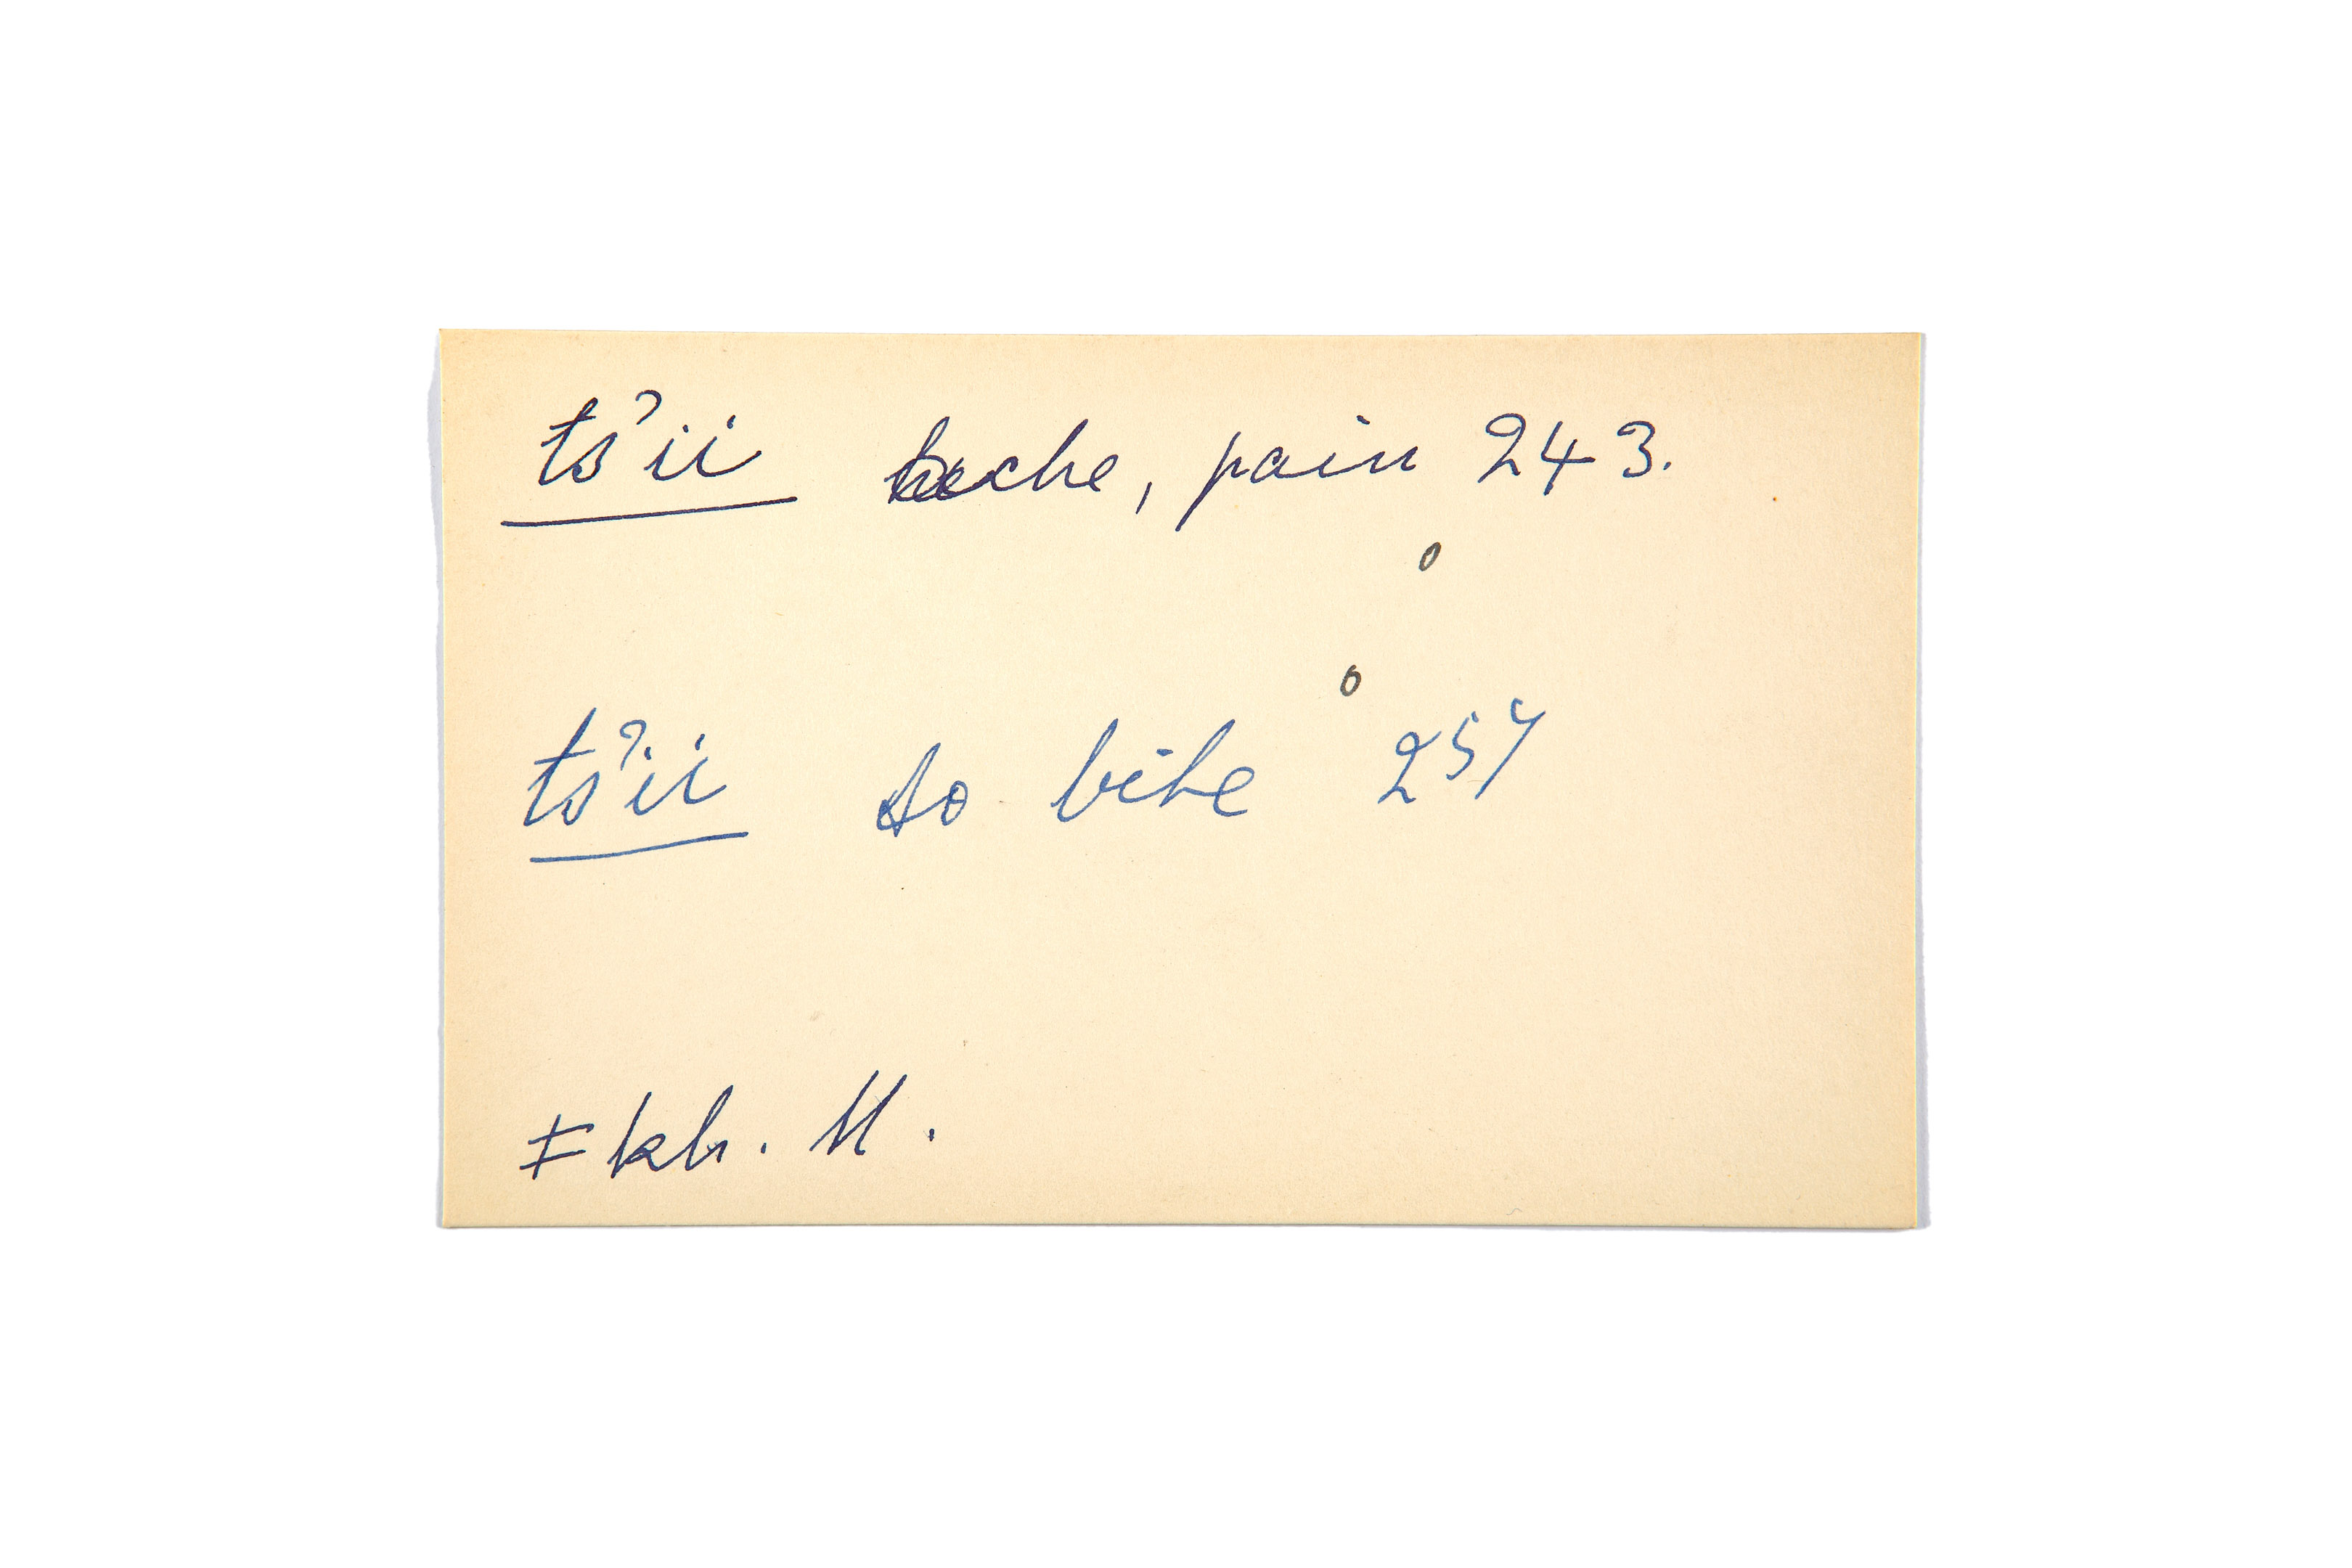 ts'ii ache, pain 243.
o
o
ts'ii to bite 257
ǂkh. M.